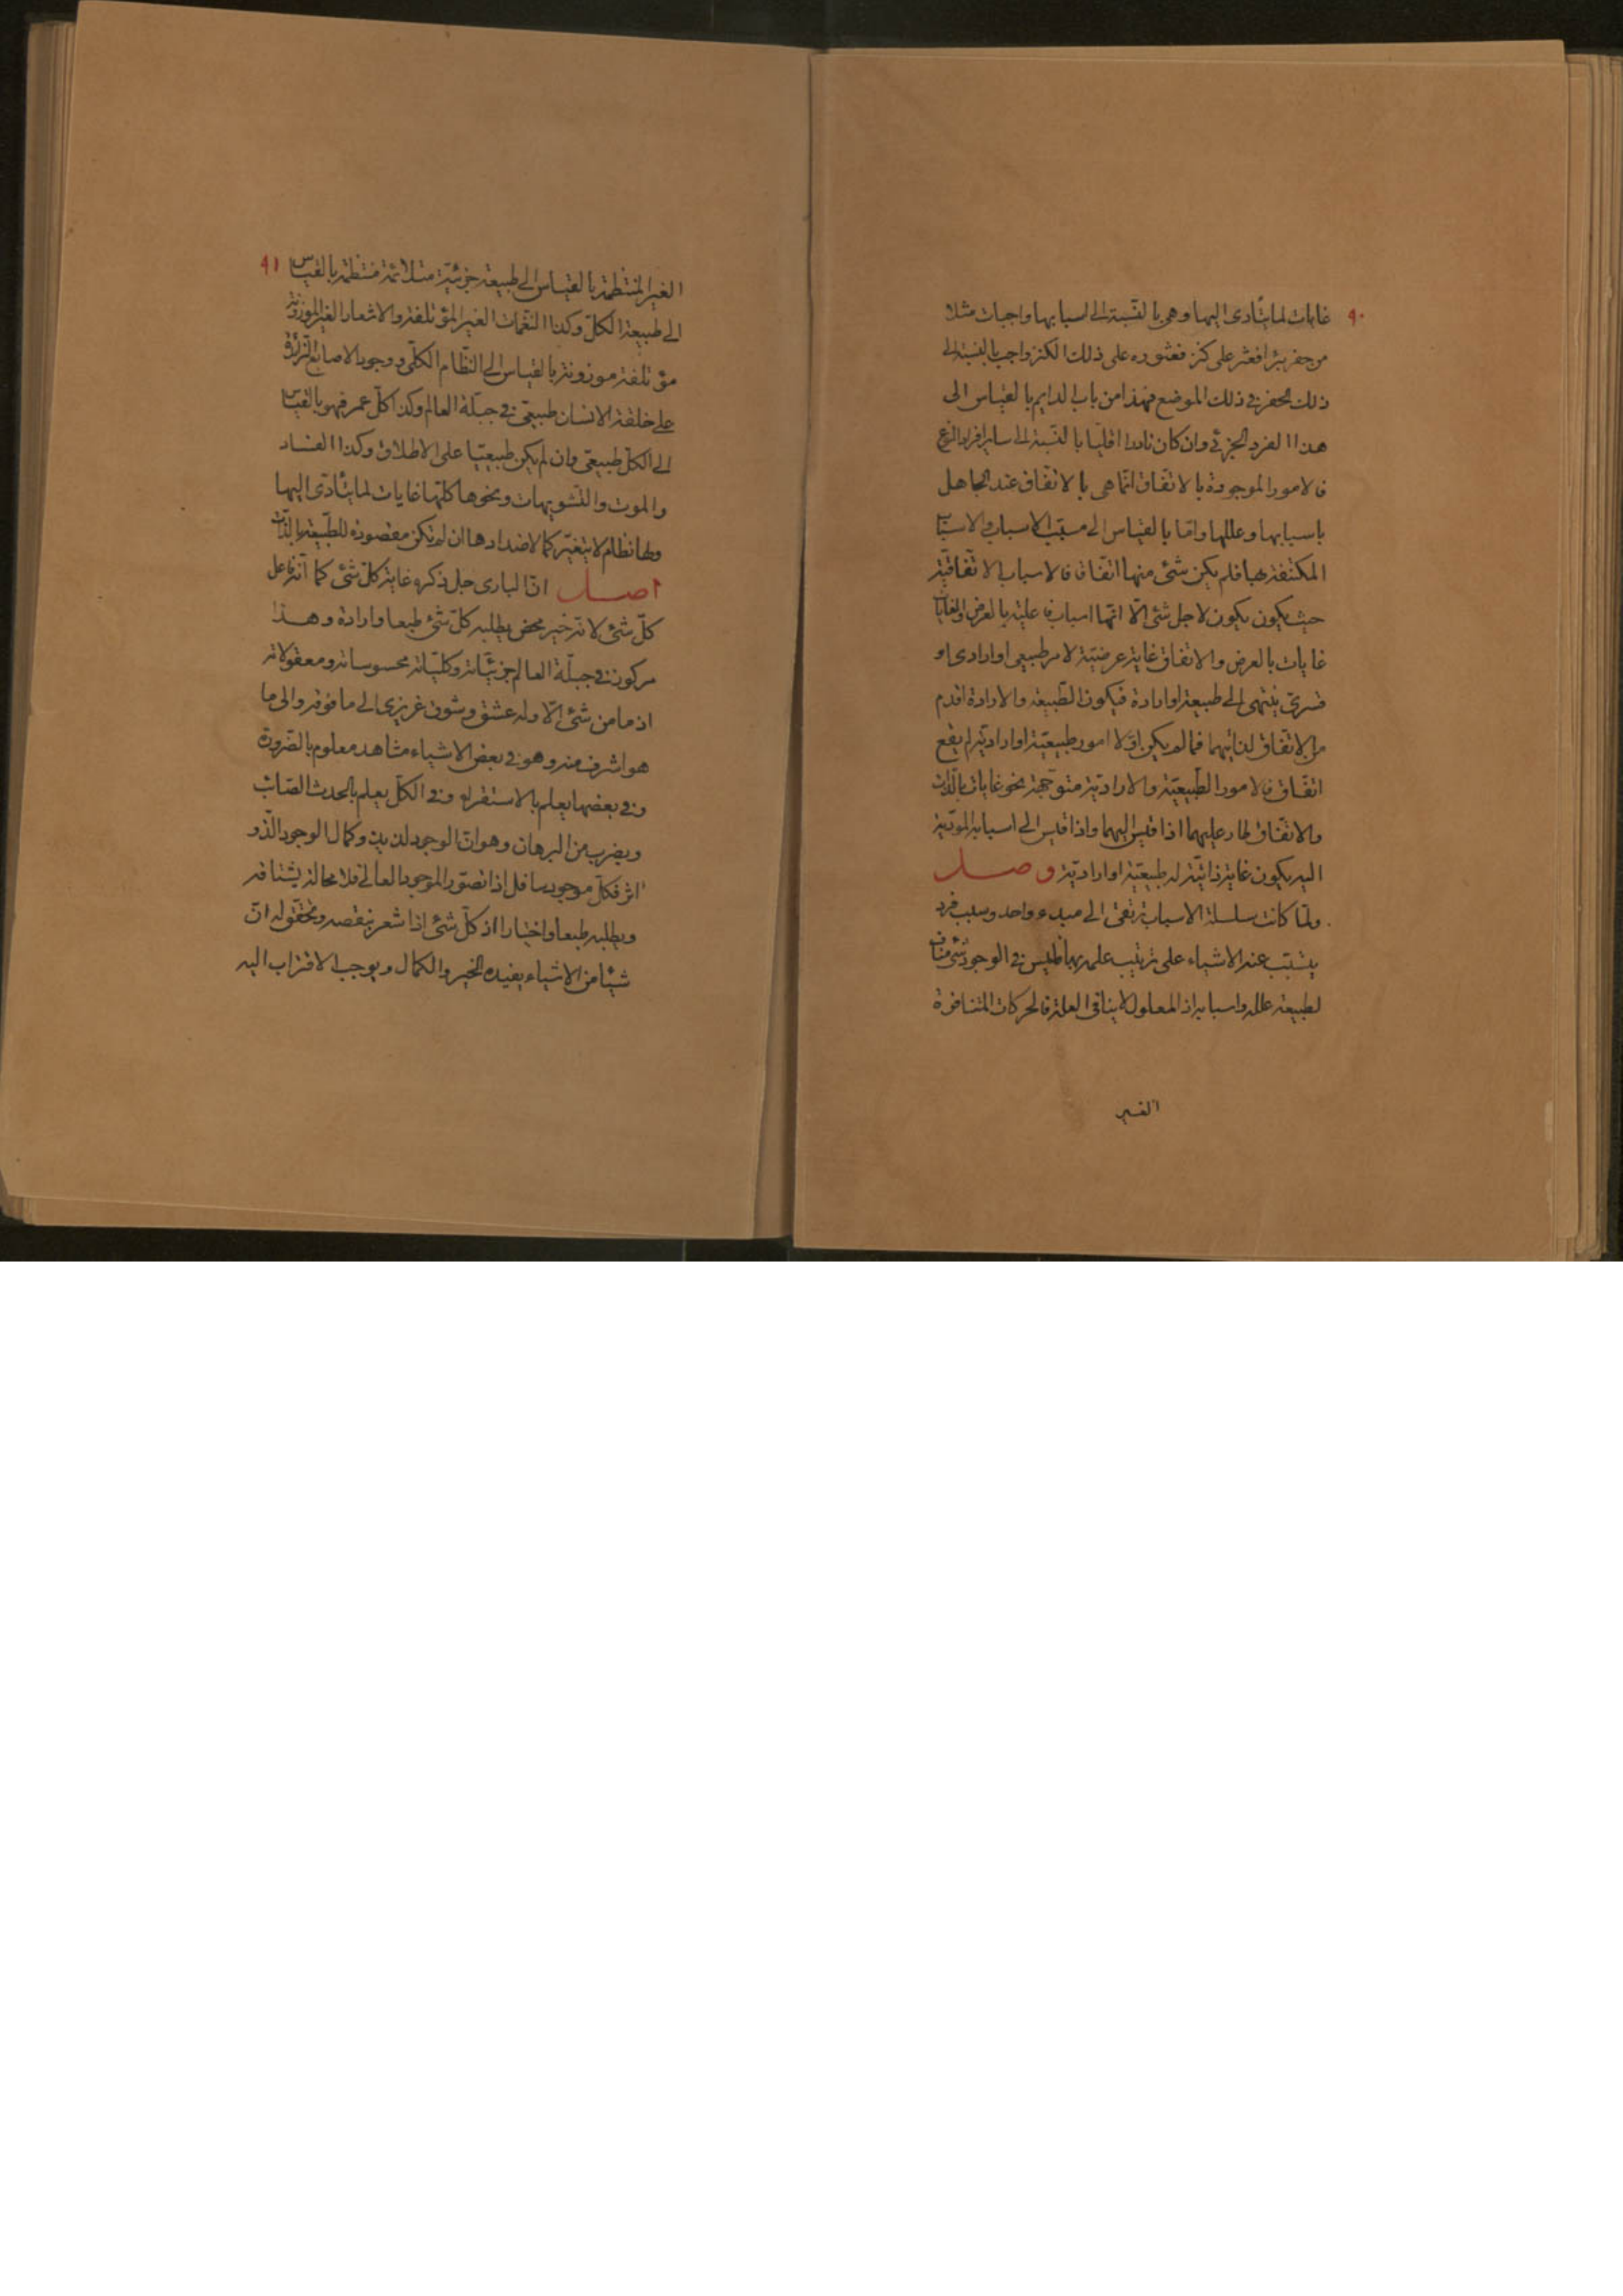 ٩٠
غايات لما يتأدى اليها وهي بالنسبة الى اسبابها واجبات مثلا
من حفر بئرا فعثر على كنز فعثوره على ذلك الكنز واجب بالنسبة الى
ذلك الحفر في ذلك الموضع فهذا من باب الدايم بالقياس الى
هذا الفرد الجزئي وان كان نادرا اقليا بالنسبة الى ساير افراد النوع
فالامور الموجودة بالاتفاق انما هي بالاتفاق عند الجاهل
باسبابها وعللها واما بالقياس الى مسبب الاسباب والاسباب
المكتنفة بها فلم يكن شئ منها اتفاقا فالاسباب الاتفاقية
حيث يكون يكون لاجل شئ الا انها اسباب فاعلية بالعرض والغايات
غايات بالعرض والاتفاق غاية عرضية لامر طبيعي او ارادي او
قسري ينتهى الى طبيعة او ارادة فيكون الطبيعة والارادة اقدم
من الاتفاق لذاتيهما فما لم يكن اولا امور طبيعية او ارادية لم يقع
اتفاق فالامور الطبيعية والارادية متوجهة نحو غايات بالذات
والاتفاق طار عليهما اذا قيس اليهما واذا قيس الى اسبابه المودية
اليه يكون غاية ذاتية له طبيعية او ارادية وصل
ولما كانت سلسلة الاسباب ترتقى الى مبدء واحد وسبب فرد
يتسبب عنه الاشياء على ترتيب علمه بها فليس في الوجود شئ مناف
لطبيعة علله واسبابه اذ المعلول لا ينافى العلة فالحركات المتنافرة
الغير
٩١
الغير المنتظمة بالقياس الى طبيعة جزئية متلائمة منتظمة بالقياس
الى طبيعة الكل وكذا النغمات الغير المؤتلفة والاشعار الغير الموزونة
مؤتلفة موزونة بالقياس الى النظام الكلى ووجود الاصابع الزائدة
على خلقة الانسان طبيعي في جبلة العالم وكذا كل عمر فهو بالقياس
الى الكل طبيعي وان لم يكن طبيعيا على الاطلاق وكذا الفساد
والموت والتشويهات ونحوها كلها غايات لما يتأدى اليها
ولها نظام لا يتغير كما لاضدادها ان لم تكن مقصودة للطبيعة بالذات
اصل ان البارى جل ذكره غاية كل شئ كما انه فاعل
كل شئ لانه خير محض يطلبه كل شئ طبعا وارادة وهذا
مركوز في جبلة العالم جزئياته وكلياته محسوساته ومعقولاته
اذ ما من شئ الا وله عشق وشوق غريزى الى ما فوقه والى ما
هو اشرف منه وهو في بعض الاشياء مشاهد معلوم بالضرورة
وفي بعضها يعلم بالاستقراء وفي الكل يعلم بالحدث الصائب
وبضرب من البرهان وهو ان الوجود لذيذ وكمال الوجود الذ و
اثر فكل موجود سافل اذا تصور الموجود العالى فلا محالة يشتاقه
ويطلبه طبعا واختيارا اذ كل شئ اذا شعر بنقصه وتحقق له ان
شيئا من الاشياء يفيده الخير والكمال ويوجب الاقتراب اليه